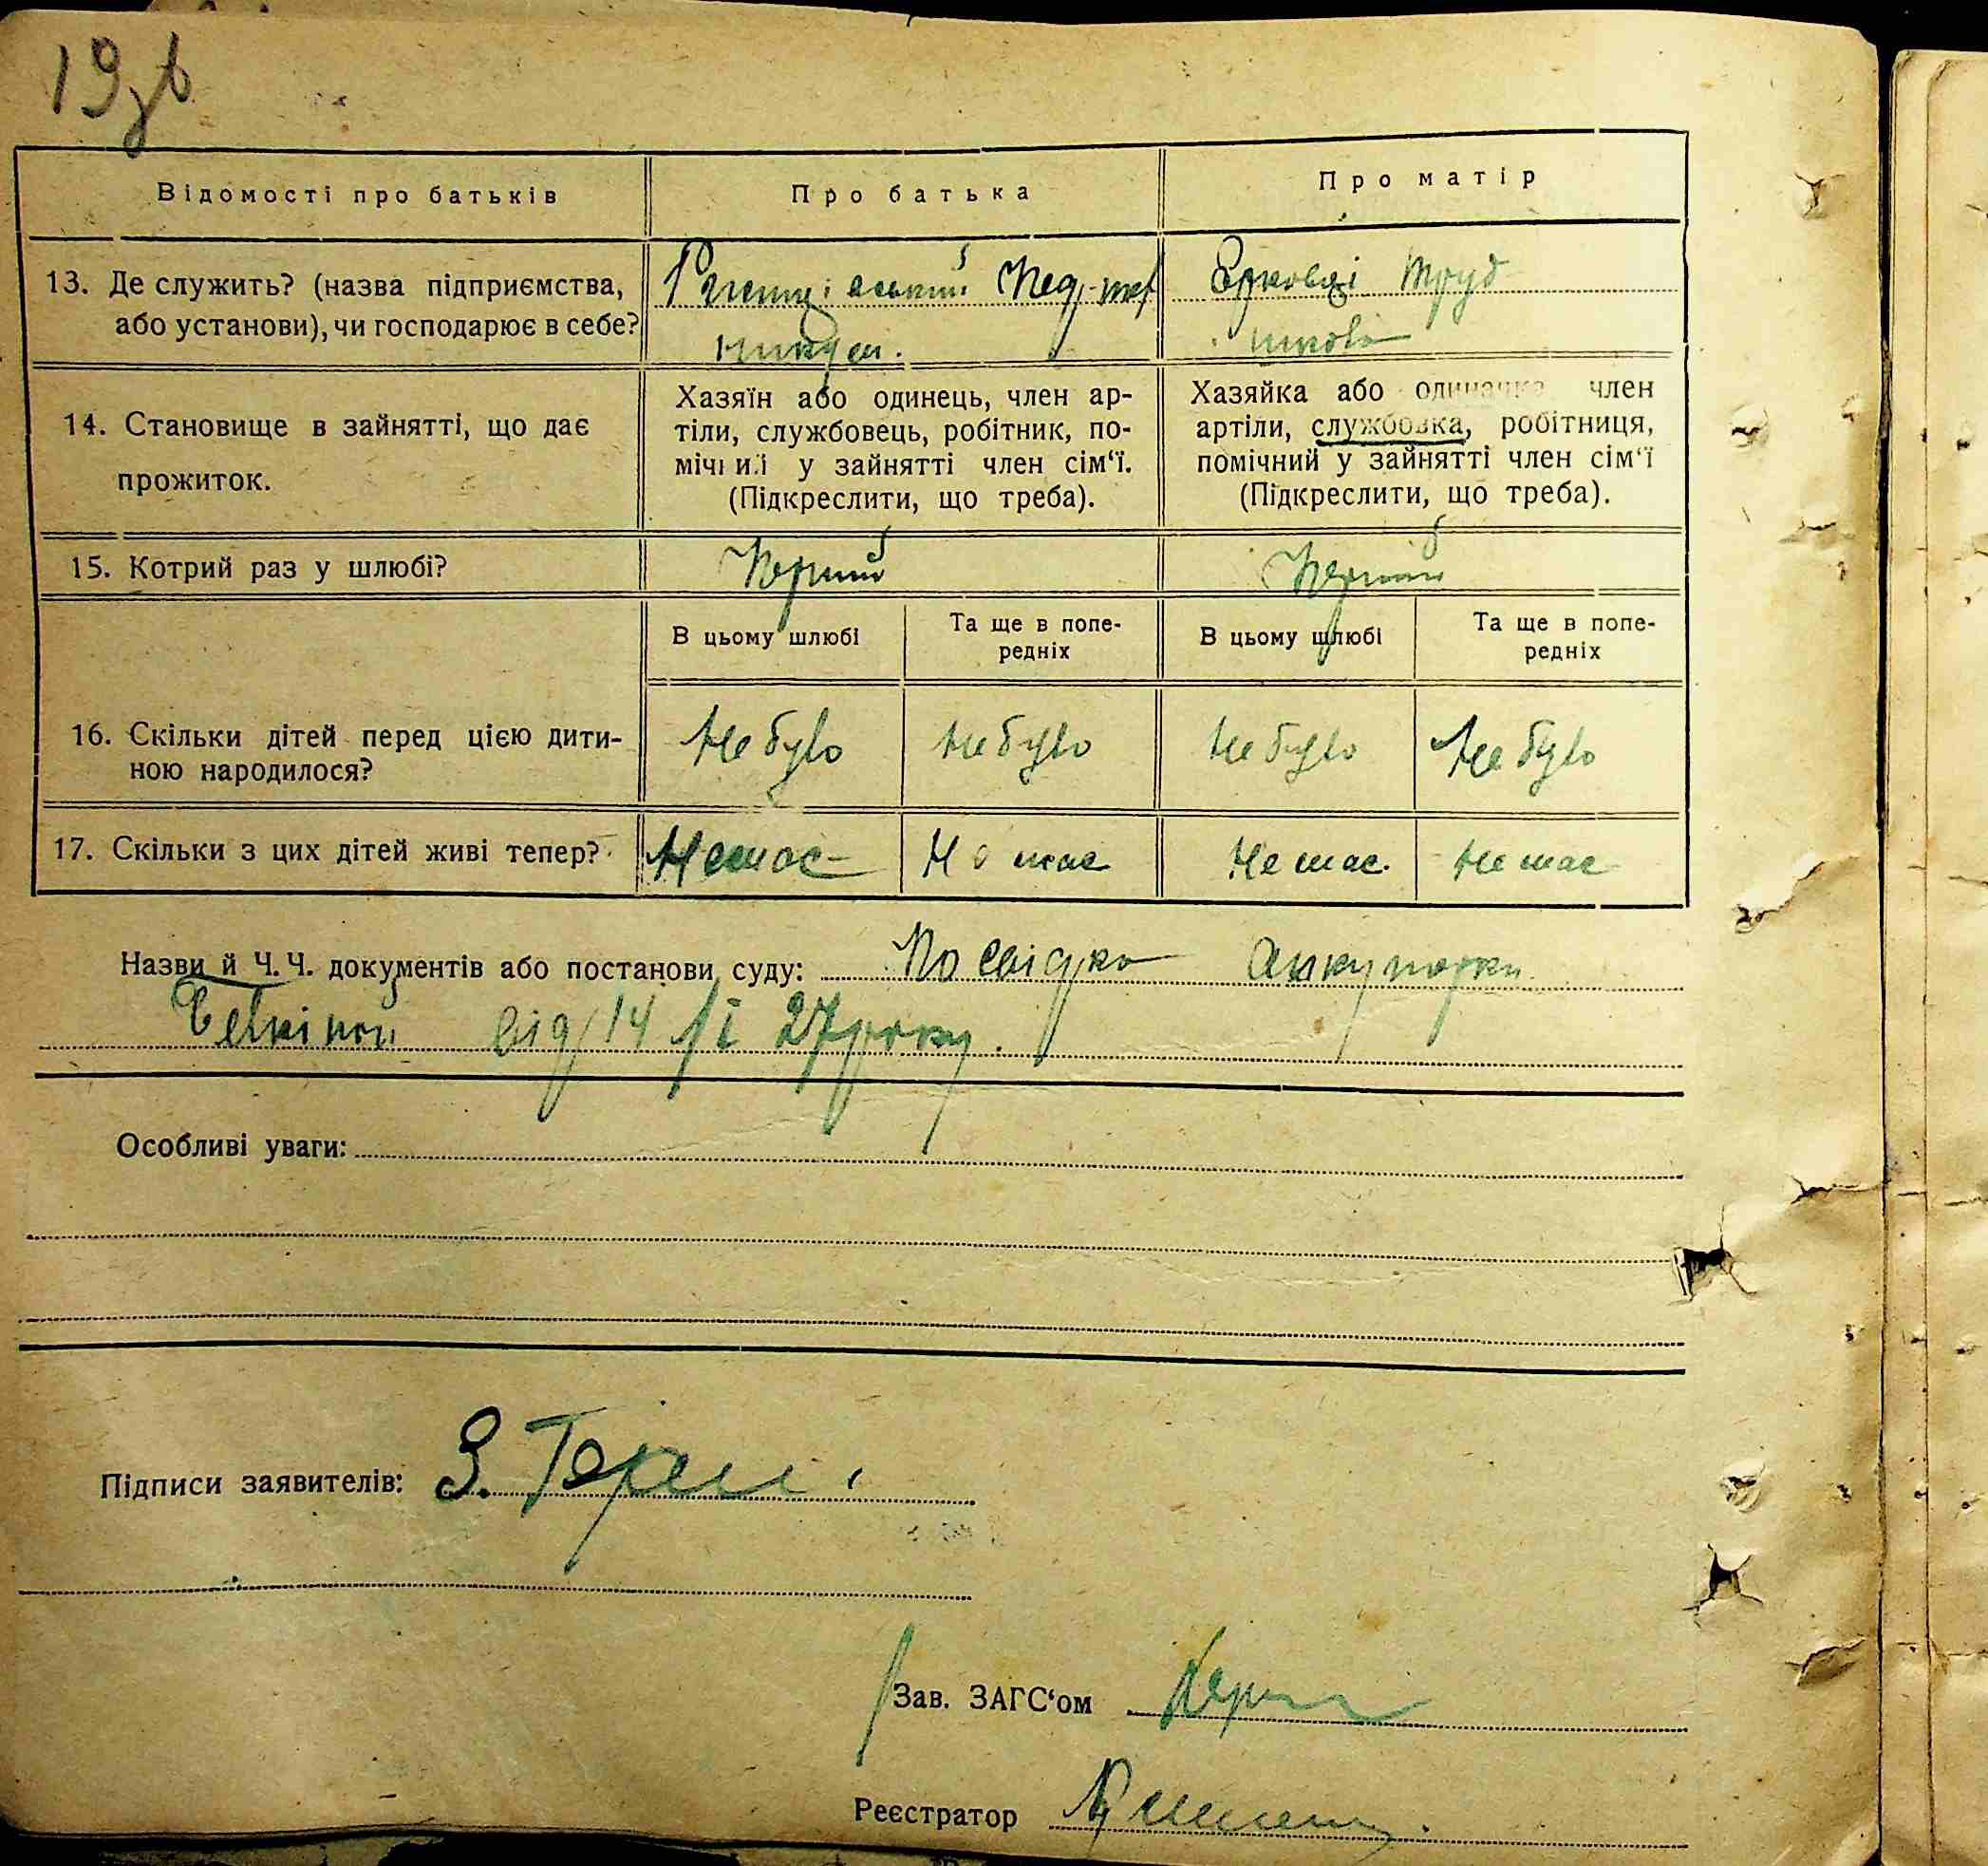 19зв
Відомості про батьків
Про батька
Про матір
13. Де служить? (назва підприємства,
або установи), чи господарює в себе?
Пед. тех
никум.
Єрковці Труд
школа
14. Становище в зайнятті, що дає
прожиток.
Хазяїн або одинець, член ар-
тіли, службовець, робітник, по-
мічний у зайнятті член сім‘ї.
(Підкреслити, що треба).
Хазяйка або одиначка член
артіли, службовка, робітниця,
помічний у зайнятті член сім‘ї
(Підкреслити, що треба).
15. Котрий раз у шлюбі?
Перший
Перший
В цьому шлюбі
Та ще в попе-
редніх
В цьому шлюбі
Та ще в попе-
редніх
16. Скільки дітей перед цією дити-
ною народилося?
Не було
Не було
Не було
Не було
17. Скільки з цих дітей живі тепер?
Немає
Немає
Немає.
Немає
Назви й Ч.Ч. документів або постанови суду: Посвідка Акушерки
від 14/І 27 року.
Особливі уваги:
Підписи заявителів: З.
Зав. ЗАГС‘ом
Реєстратор